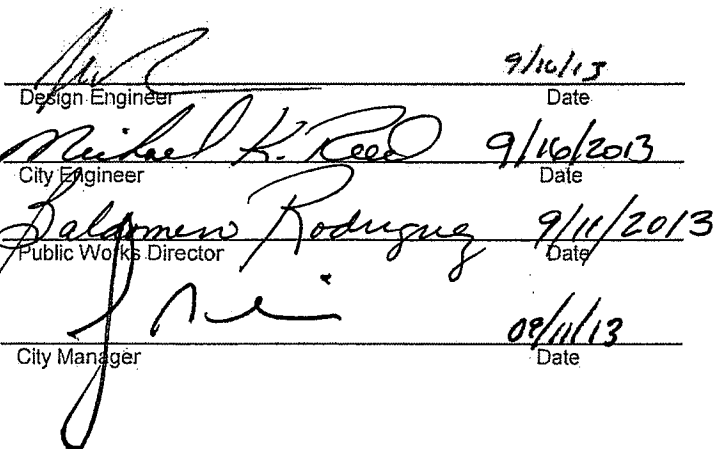 9/16/13
Design Engineer Date
Michael K. Reed 9/16/2013
City Engineer Date
Baldomero Rodriguez 9/11/2013
Public Works Director Date
09/11/13
City Manager Date